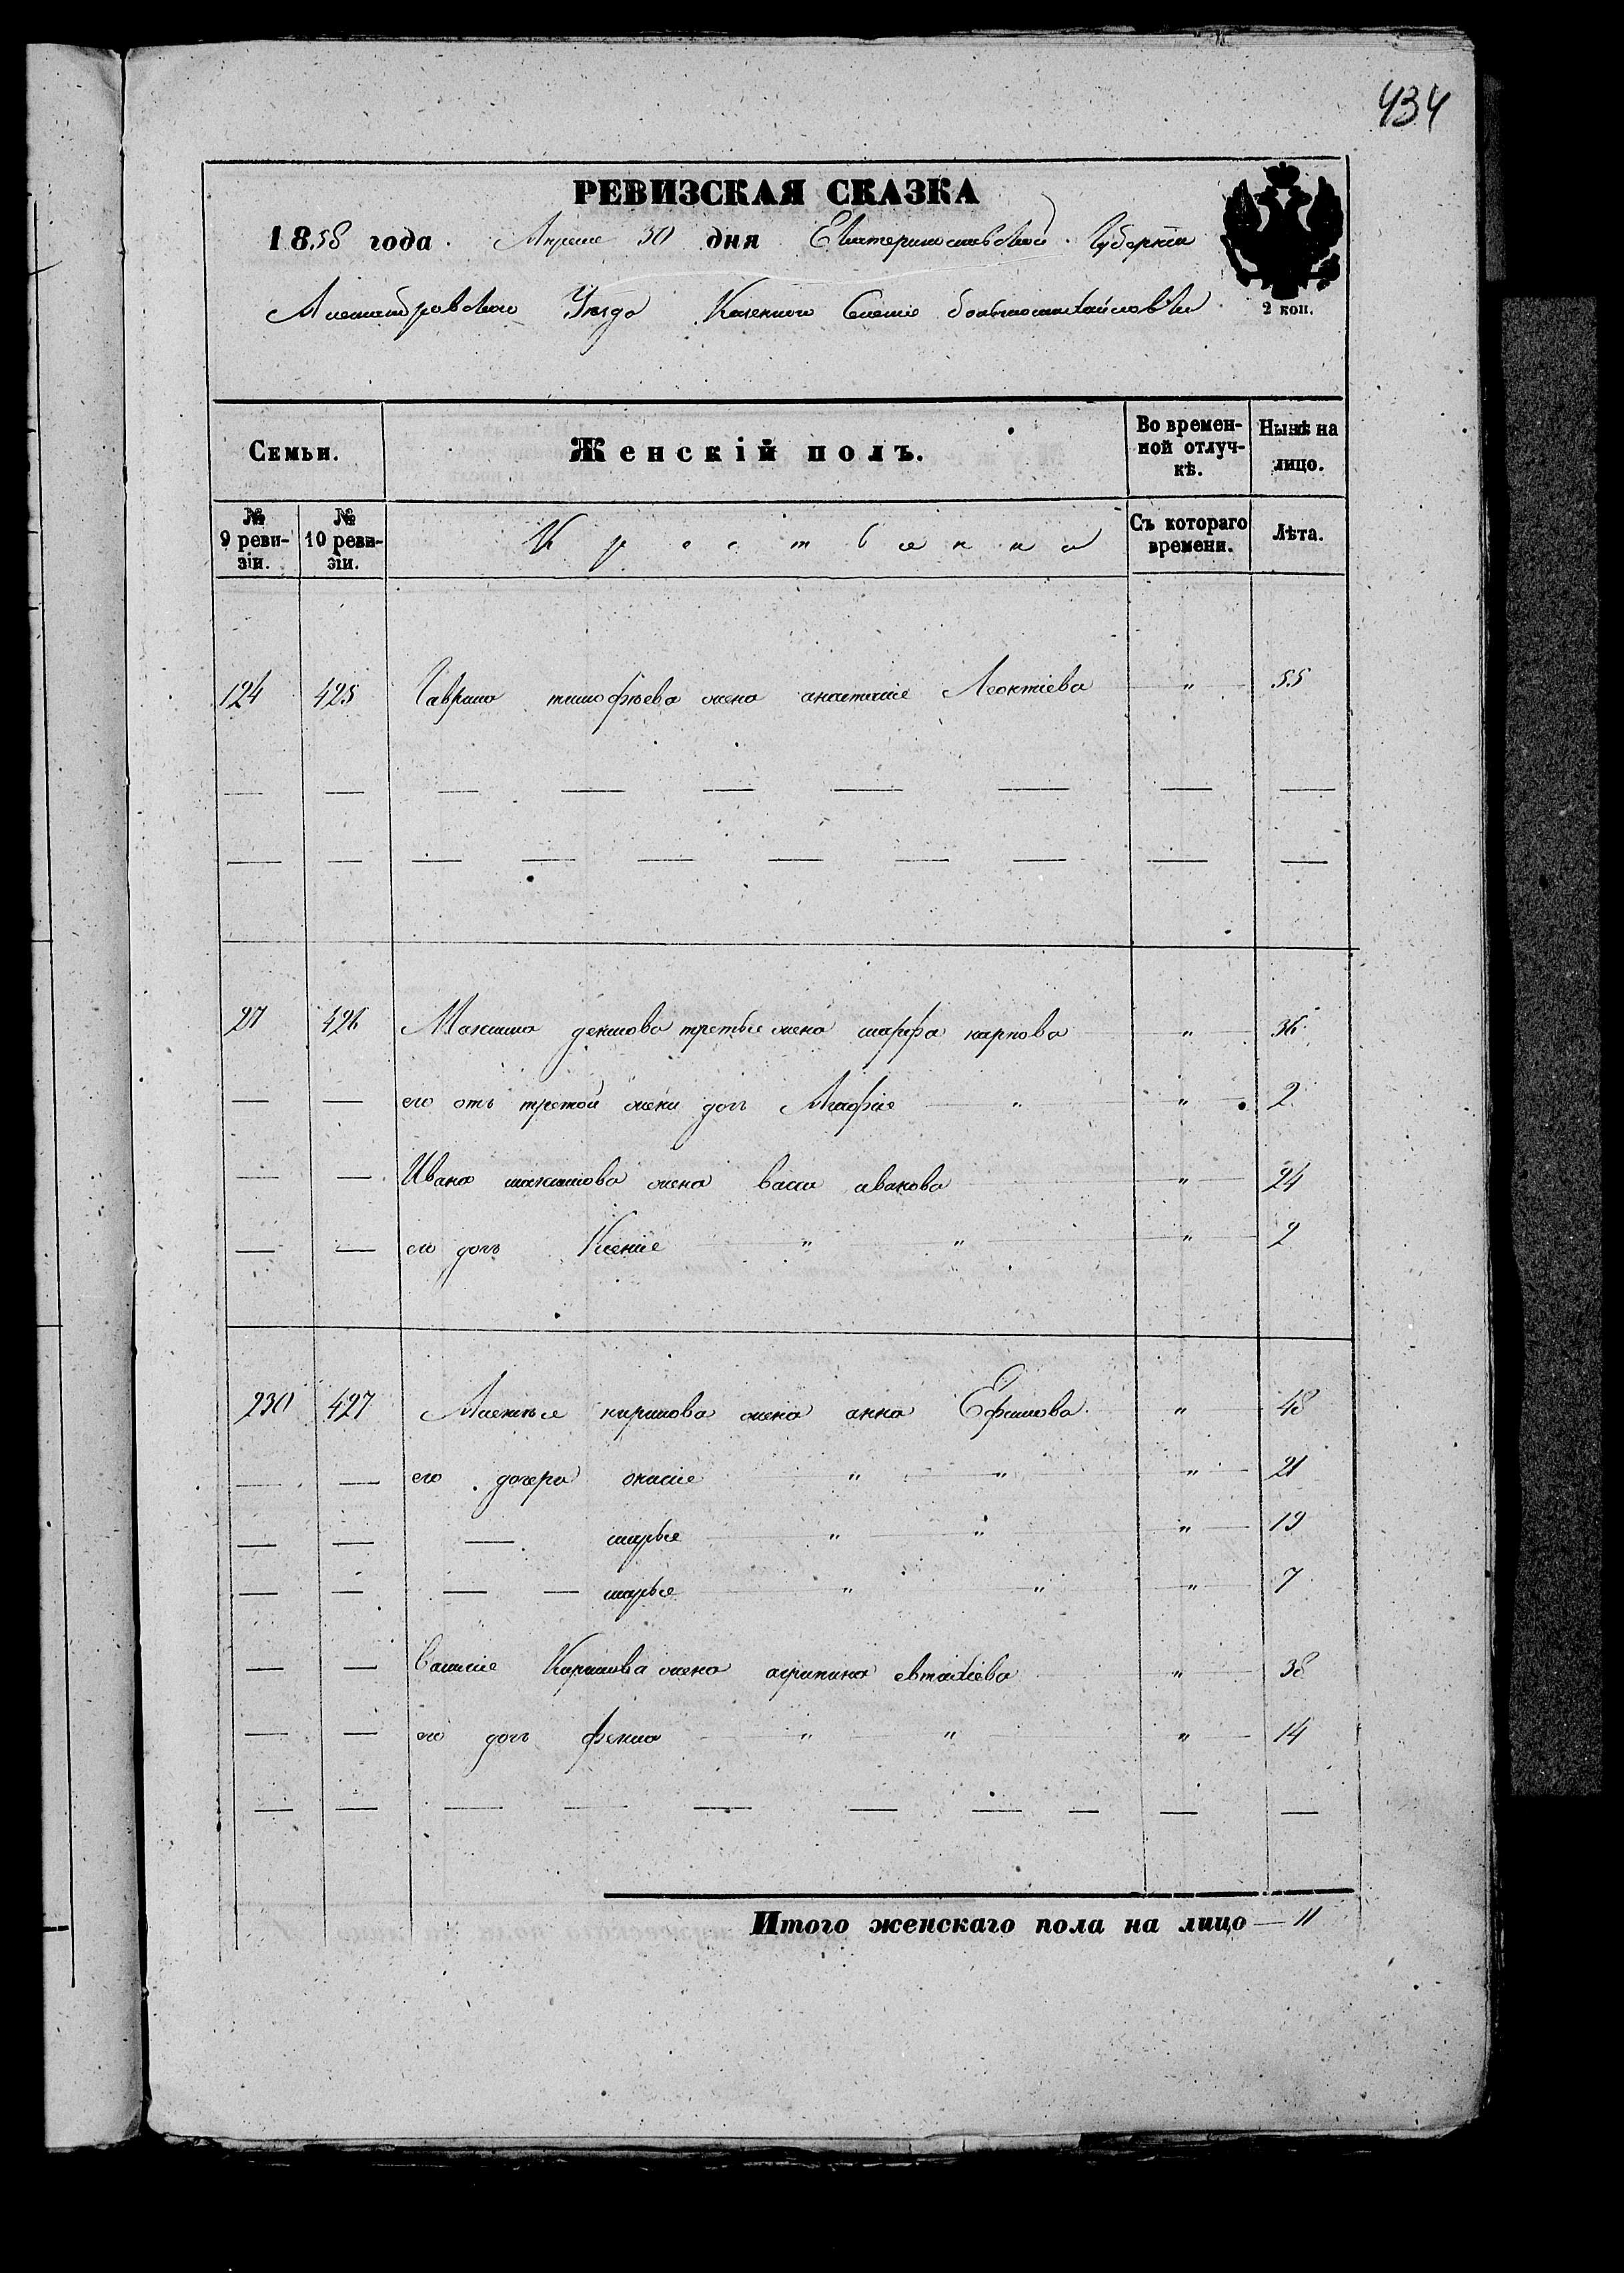 434
РЕВИЗСКАЯ СКАЗКА
1858 года. Апреля 30 дня Екатеринославской Губернiи
Александровского Уезда Казенного Селенiе большомихайловки
2 коп.
Семьи. Женскiй полъ. Во временной отлучкѣ. Нынѣ на лицо.
№ 9 ревизiи. № 10 ревизiи. Крестьянка Съ котораго времени. Лѣта.
124 425 Гаврила тимофѣева жена анастасiе Леонтiева " 55
27 426 Максима демкова третье жена марфа карпова " 36
его отъ третой жены доч Агафiе " " 2
Ивана максимова жена васса иванова " 24
его доч Ксенiе " " " 2
230 427 Алексѣе карпова жена анна Ефимова " 48
его дочера " " " 21
марье " " " 19
марье " " " 7
Василiе Карпова жена агрипина евтахiева " 38
его доч фекла " " " 14
Итого женскаго пола на лицо — 11